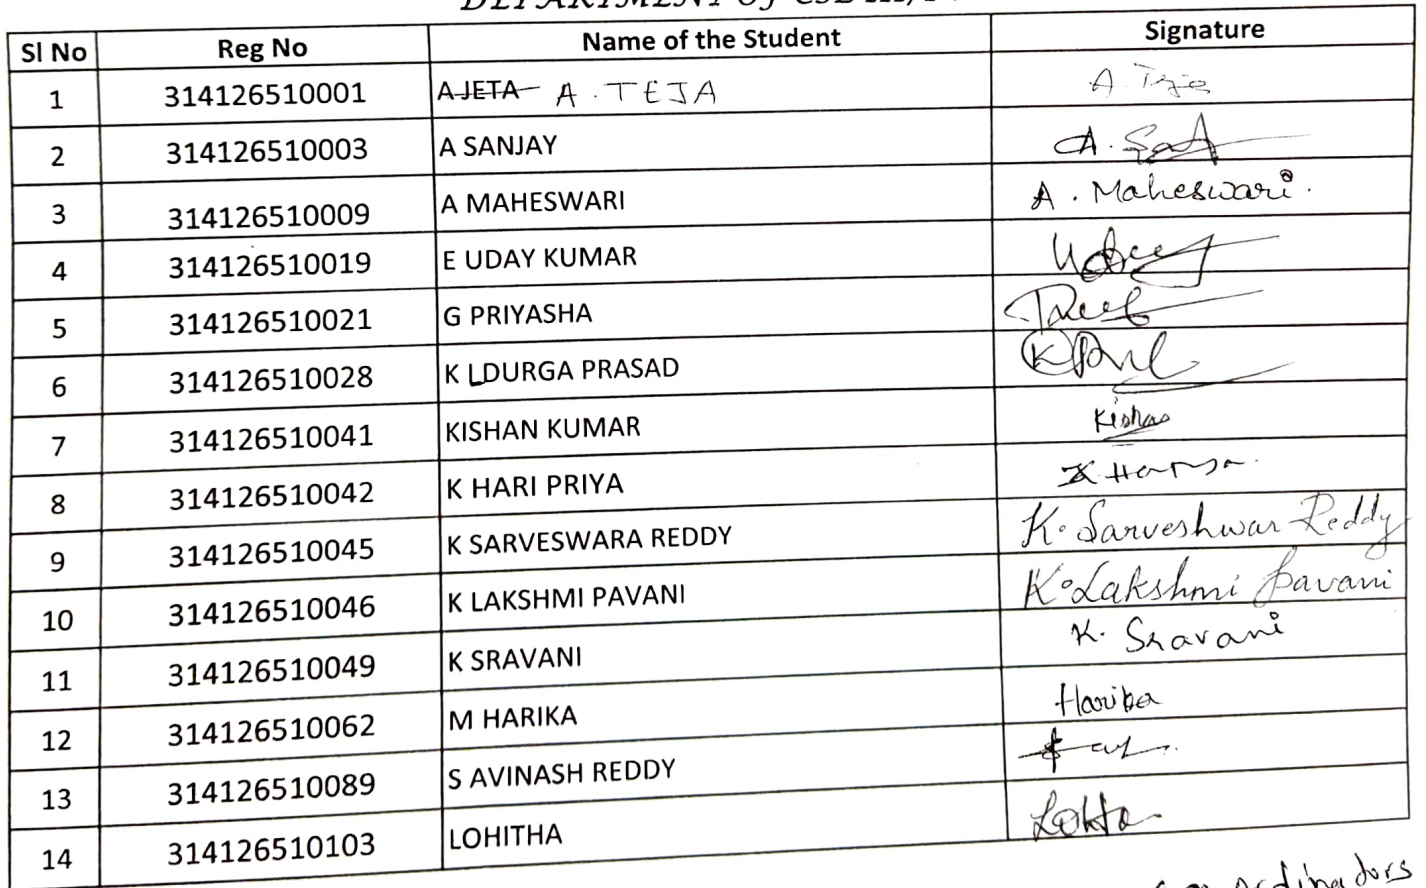 DEPARTMENT Of CSE
Sl No Reg No Name of the Student Signature
1 314126510001 A JETA A. TEJA A. Teja
2 314126510003 A SANJAY A.
3 314126510009 A MAHESWARI A. Maheswari.
4 314126510019 E UDAY KUMAR
5 314126510021 G PRIYASHA
6 314126510028 K LDURGA PRASAD
7 314126510041 KISHAN KUMAR Kishan
8 314126510042 K HARI PRIYA
9 314126510045 K SARVESWARA REDDY K. Sarveshwar Reddy
10 314126510046 K LAKSHMI PAVANI K. Lakshmi Pavani
11 314126510049 K SRAVANI K. Sravani
12 314126510062 M HARIKA Harika
13 314126510089 S AVINASH REDDY
14 314126510103 LOHITHA